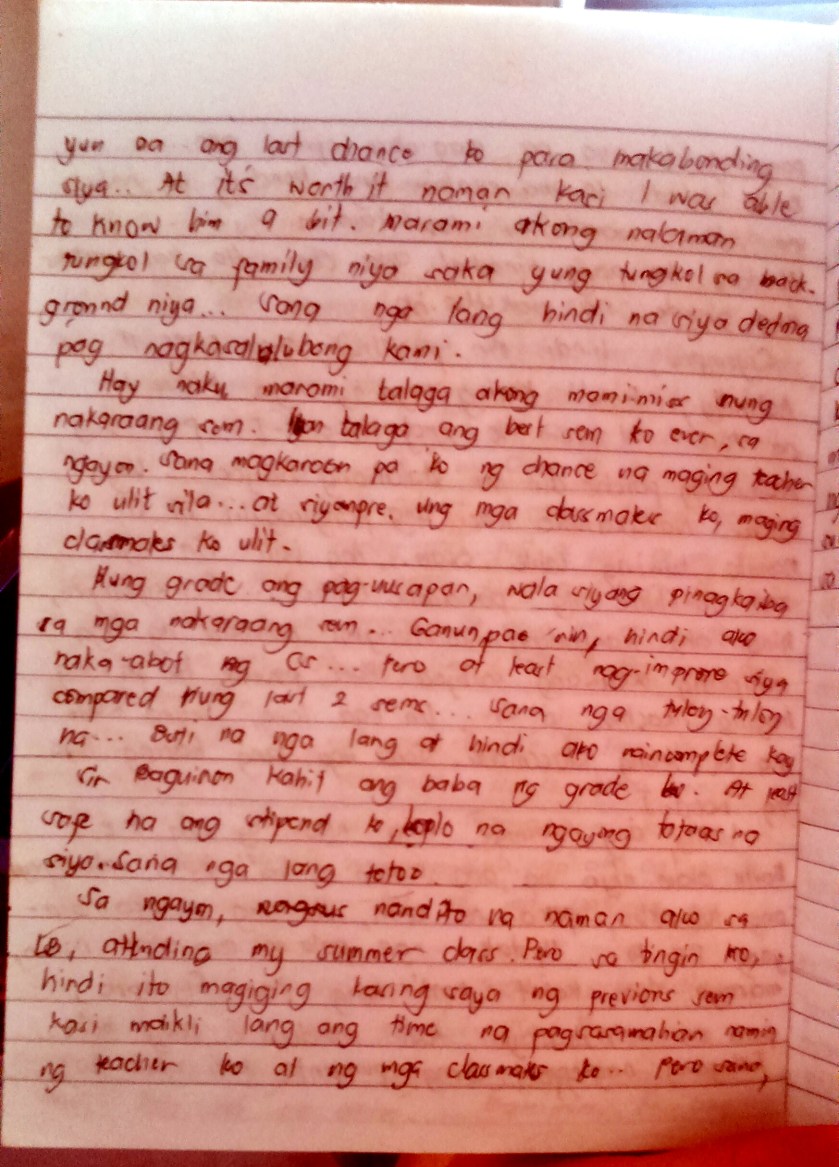 yun na ang last chance ko para makabonding
siya.. At it's worth it naman kasi I was able
to know him a bit. Marami akong nalaman
tungkol sa family niya saka yung tungkol sa back-
ground niya... Sana nga lang hindi na siya dedma
pag nagkasalubong kami.
Hay naku marami talaga akong mami-miss nung
nakaraang sem. Yan talaga ang best sem ko ever, sa
ngayon. Sana magkaroon pa ko ng chance na maging teacher
ko ulit sila... at siyempre. Ung mga classmates ko, maging
classmates ko ulit.
Kung grade ang pag-uusapan, wala siyang pinagkaiba
sa mga nakaraang sem... Ganun pa rin, hindi ako
naka-abot ng CS... Pero at least nag-improve siya
compared kung last 2 sems... Sana nga tuloy-tuloy
na... Buti na nga lang at hindi ako naincomplete kay
Sir Baguinon kahit ang baba ng grade ko. At least
safe na ang stipend ko, na ngayong tataas na
siya. Sana nga lang totoo.
Sa ngayon, nandito na naman ako sa
attending my summer class. Pero sa tingin ko,
hindi ito magiging kasing saya ng previous sem
kasi maikli lang ang time na pagsasamahan namin
ng teacher ko at ng mga classmates ko.. Pero sana,